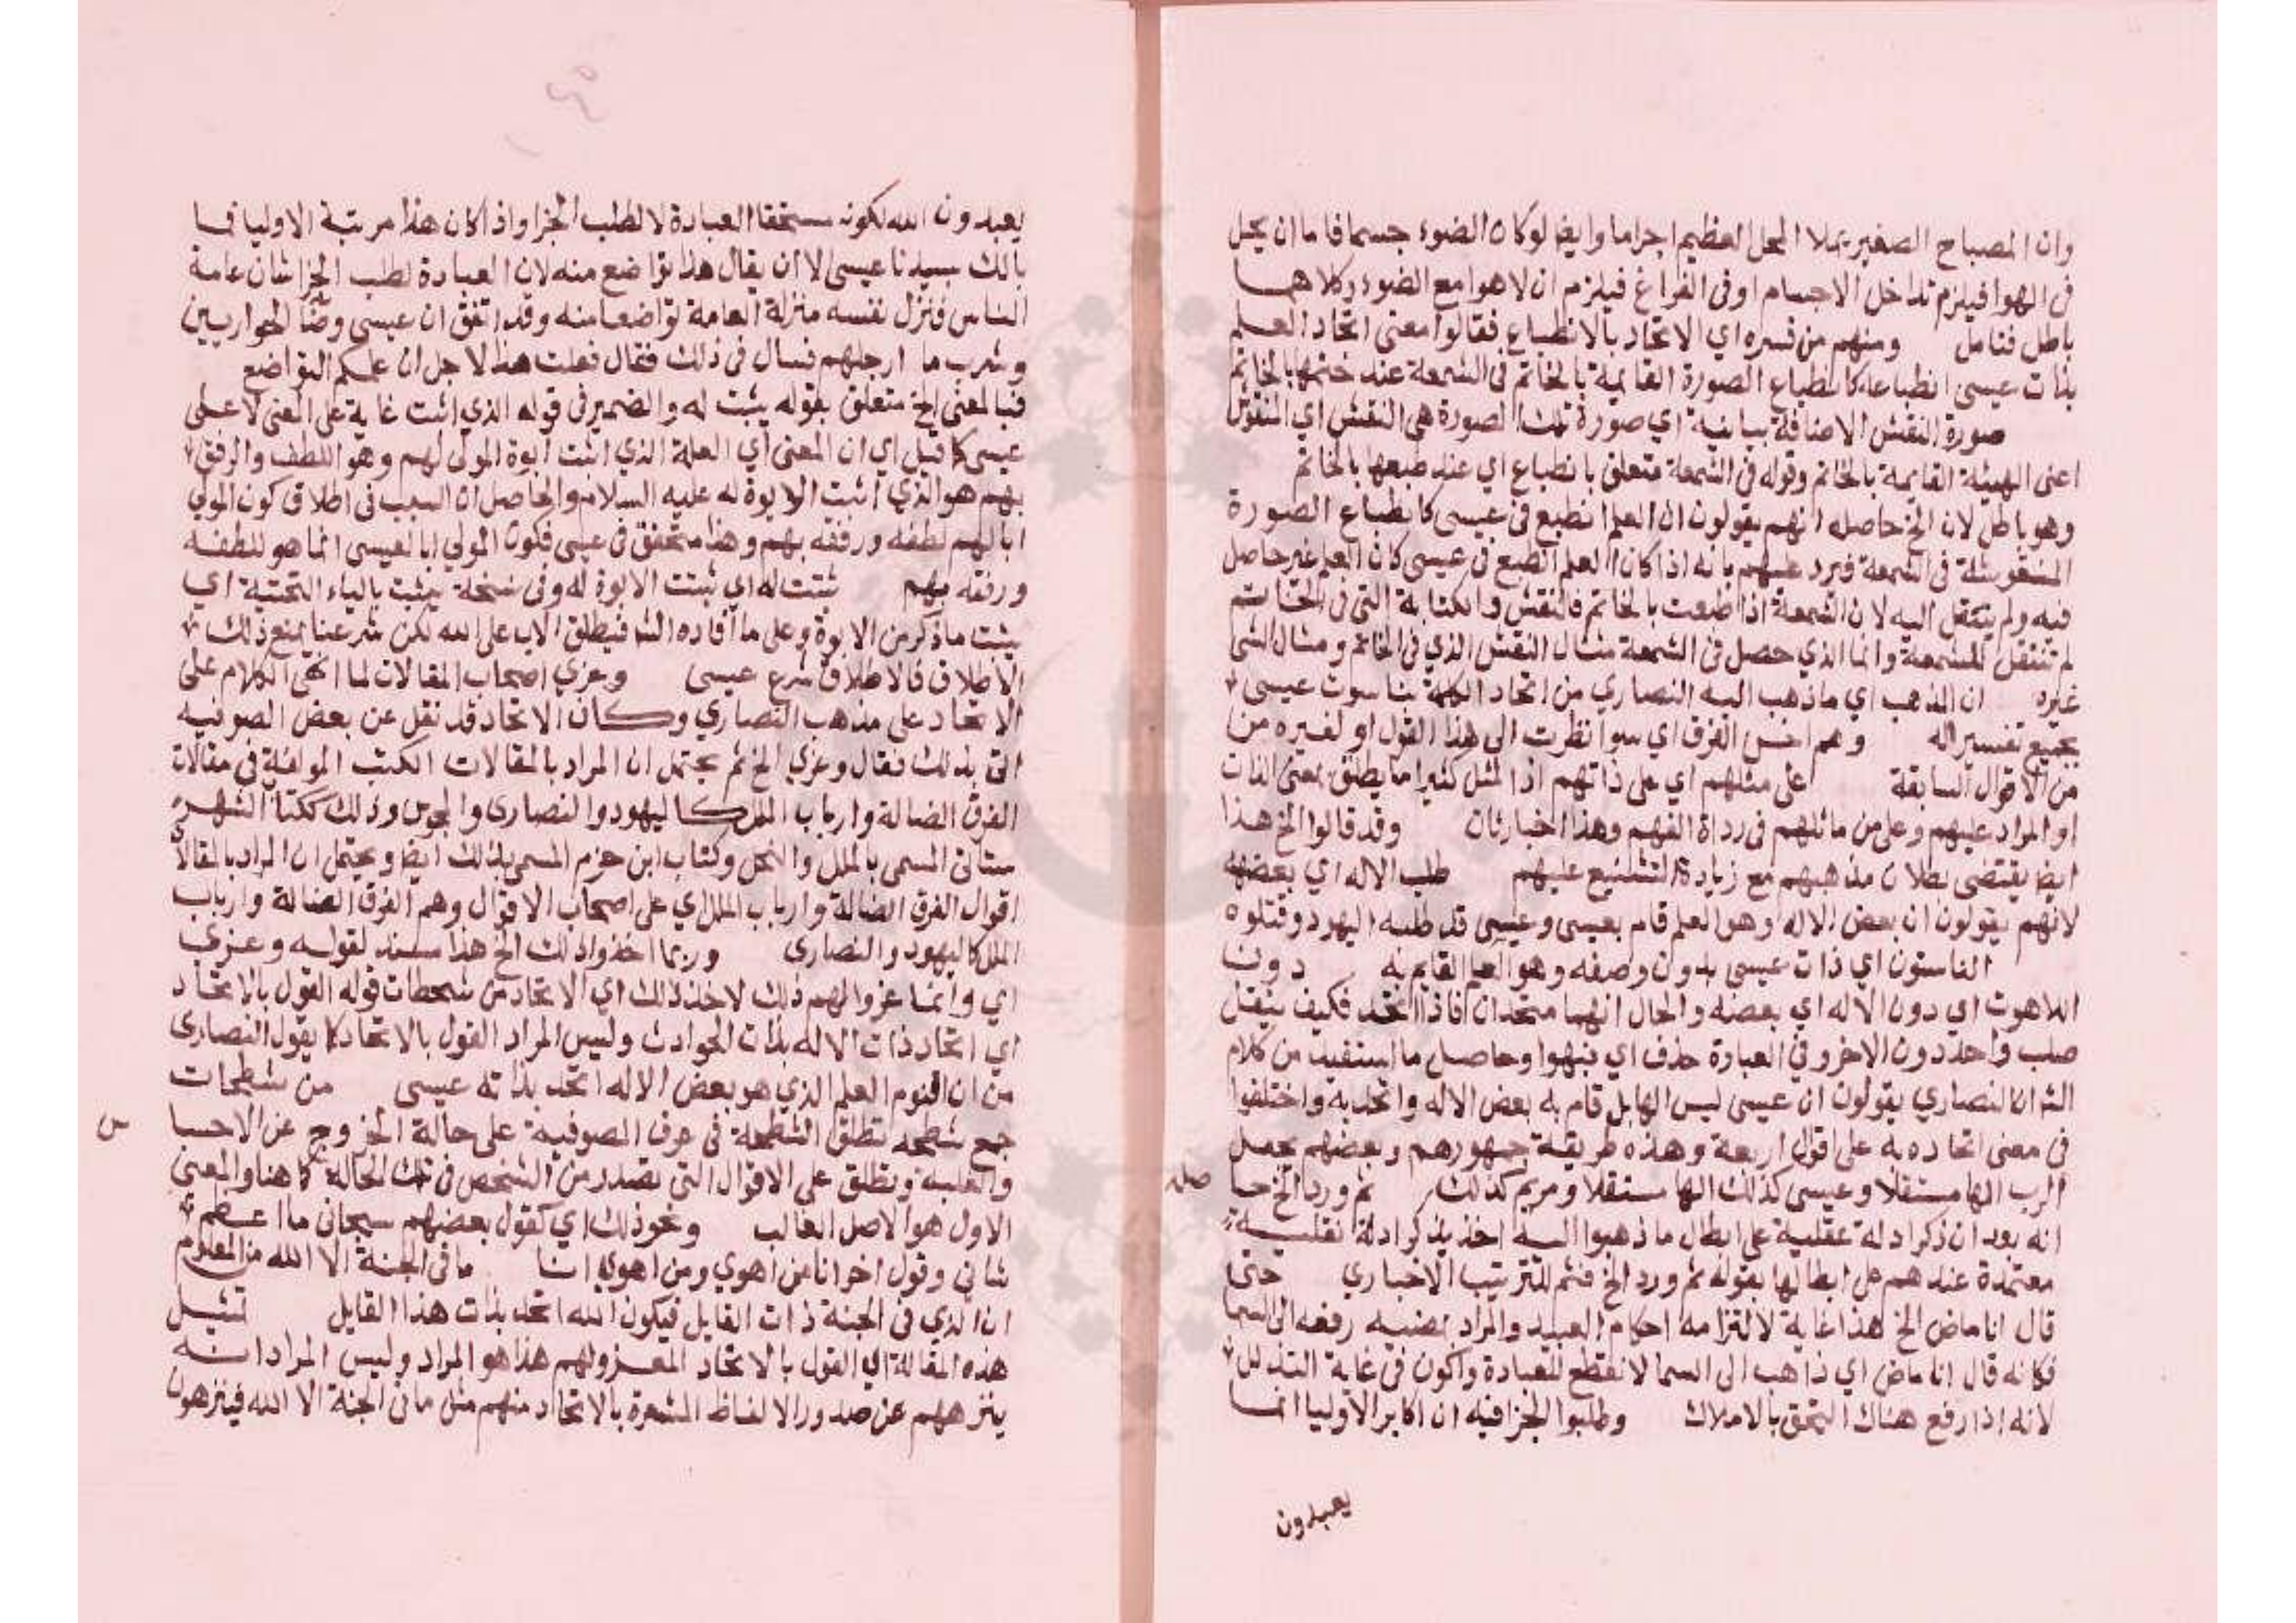 وان المصباح الصغير يملا المحل العظيم اجراما وايض لوكان الضوء جسما فاما ان يحل
فى الهوا فيلزم تداخل الاجسام اوفى الفراغ فيلزم ان لا هوا مع الضوء وكلاهما
باطل فتامل ومنهم من فسره اي الاتحاد بالانطباع فقالوا معنى اتحاد العلم
بذات عيسى انطباعه كانطباع الصورة القايمة بالخاتم فى الشمعة عند ختمها بالخاتم
صورة النقش الاضافة بيانية اي صورة تلك الصورة هى النقش اي المنقوش
اعنى الهيئة القايمة بالخاتم وقوله فى الشمعة متعلق بانطباع اي عند طبعها بالخاتم
وهو باطل لان الخ حاصله انهم يقولون ان العلم انطبع فى عيسى كانطباع الصورة
المنقوشة فى الشمعة فيرد عليهم بانه اذا كان العلم انطبع فى عيسى كان العلم غير حاصل
فيه ولم ينتقل اليه لان الشمعة اذا طبعت بالخاتم فالنقش والكتابة التى فى الخاتم
لم تنتقل للشمعة وانما الذي حصل فى الشمعة مثال النقش الذي فى الخاتم ومثال الشى
غيره ان المذهب اي ما ذهب اليه النصاري من اتحاد الكلمة بناسوت عيسى
بجميع تفسيراته وهم اخس الفرق اي سوا نظرت الى هذا القول او لغيره من
من الاقوال السابقة على مثلهم اي على ذاتهم اذ المثل كثيرا ما يطلق بمعنى الذات
او المراد عليهم وعلى من ماثلهم فى رداة الفهم وهذا اخبار ثان وقد قالوا الخ هذا
ايض يقتضى بطلان مذهبهم مع زيادة التشنيع عليهم طلب الاله اي بعضه
لانهم يقولون ان بعض الاله وهو العلم قام بعيسى وعيسى قد طلبه اليهود وقتلوه
الناسوت اي ذات عيسى بدون وصفه وهو العلم القايم به دون
اللاهوت اي دون الاله اي بعضه والحال انهما متحدان فاذا اتحد فكيف ينتقل
صلب واحد دون الاخر وفى العبارة حذف اي نبهوا وحاصل ما استفيد من كلام
الش ان النصاري يقولون ان عيسى ليس الها بل قام به بعض الاله واتحد به واختلفوا
فى معنى اتحاده به على اقوال اربعة وهذه طريقة جمهورهم وبعضهم يجعل
الرب الها مستقلا وعيسى كذلك الها مستقلا ومريم كذلك ثم ورد الخ حا
صله
انه بعد ان ذكر ادلة عقلية على ابطال ما ذهبوا اليه اخذ يذكر ادلة نقلية
معتمدة عندهم على ابطالها بقوله ثم ورد الخ فثم للترتيب الاخباري حتى
قال انا ماض الخ هذا غاية لالتزامه احكام العبيد والمراد بمضيه رفعه الى السما
فكانه قال انا ماض اي ذاهب الى السما لانقطع للعبادة واكون فى غاية التذلل
لانه اذا رفع هناك التحق بالاملاك وطلبوا الجزا فيه ان اكابر الاوليا انما
يعبدون
يعبدون الله لكونه مستحقا العبادة لا لطلب الجزا واذا كان هذا مرتبة الاوليا فما
بالك بسيدنا عيسى الا ان يقال هذا تواضع منه لان العبادة لطلب الجزا شان عامة
الناس فنزل نفسه منزلة العامة تواضعا منه وقد اتفق ان عيسى وضا الحواريين
وشرب ما ارجلهم فسال فى ذلك فقال فعلت هذا لاجل ان علمكم التواضع
فبالمعنى الخ متعلق بقوله يثبت له والضمير فى قوله الذي اثبت غاية على المعنى لا على
عيسى كما قيل اي ان المعنى اي العلة الذي اثبت ابوة المولى لهم وهو اللطف والرفق
بهم هو الذي اثبت الابوة له عليه السلام والحاصل ان السبب فى اطلاق كون المولى
ابا لهم لطفه ورفقه بهم وهذا متحقق فى عيسى فكون المولي ابا لعيسى انما هو للطفه
ورفقه بهم ثبتت له اي ثبتت الابوة له وفى نسخة يثبت بالياء التحتية اي
يثبت ما ذكر من الابوة وعلى ما افاده الش فيطلق الاب على الله لكن شرعنا يمنع ذلك
الاطلاق فالاطلاق شرع عيسى وعزي اصحاب المقالات لما انهى الكلام على
الاتحاد على مذهب النصاري وكان الاتحاد قد نقل عن بعض الصوفية
اتى بذلك فقال وعزي الخ ثم يحتمل ان المراد بالمقالات الكتب المولفة فى مقالات
الفرق الضالة وارباب الملل كاليهود والنصارى والمجوس وذلك ككتاب الشهر
ستانى المسمى بالملل والنحل وكتاب ابن حزم المسمى بذلك ايض ويحتمل ان المراد بالمقالات
اقوال الفرق الضالة وارباب الملل اي على اصحاب الاقوال وهم الفرق الضالة وارباب
الملل كاليهود والنصارى وربما اخذوا ذلك الخ هذا مسند لقوله وعزي
اي وانما عزوا لهم ذلك لاخذ ذلك اي الاتحاد من شطحات قوله القول بالاتحاد
اي اتحاد ذات الاله بذات الحوادث وليس المراد القول بالاتحاد كما يقول النصارى
من ان اقنوم العلم الذي هو بعض الاله اتحد بذاته عيسى من شطحات
جمع شطحه تطلق الشطحة فى عرف الصوفية على حالة الخروج عن الاحسا
س
والغلبة وتطلق على الاقوال التى تصدر من الشخص فى تلك الحالة كما هنا والمعنى
الاول هو الاصل الغالب ونحو ذلك اي كقول بعضهم سبحانى ما اعظم
شانى وقول اخر انا من اهوي ومن اهوي انا ما فى الجنة الا الله من المعلوم
ان الذي فى الجنة ذات القايل فيكون الله اتحد بذات هذا القايل تمثيل
هذه المقالة اي القول بالاتحاد المعزو لهم هذا هو المراد وليس المراد انه
ينزههم عن صدور الالفاظ المشعرة بالاتحاد منهم مثل ما فى الجنة الا الله فينزهون